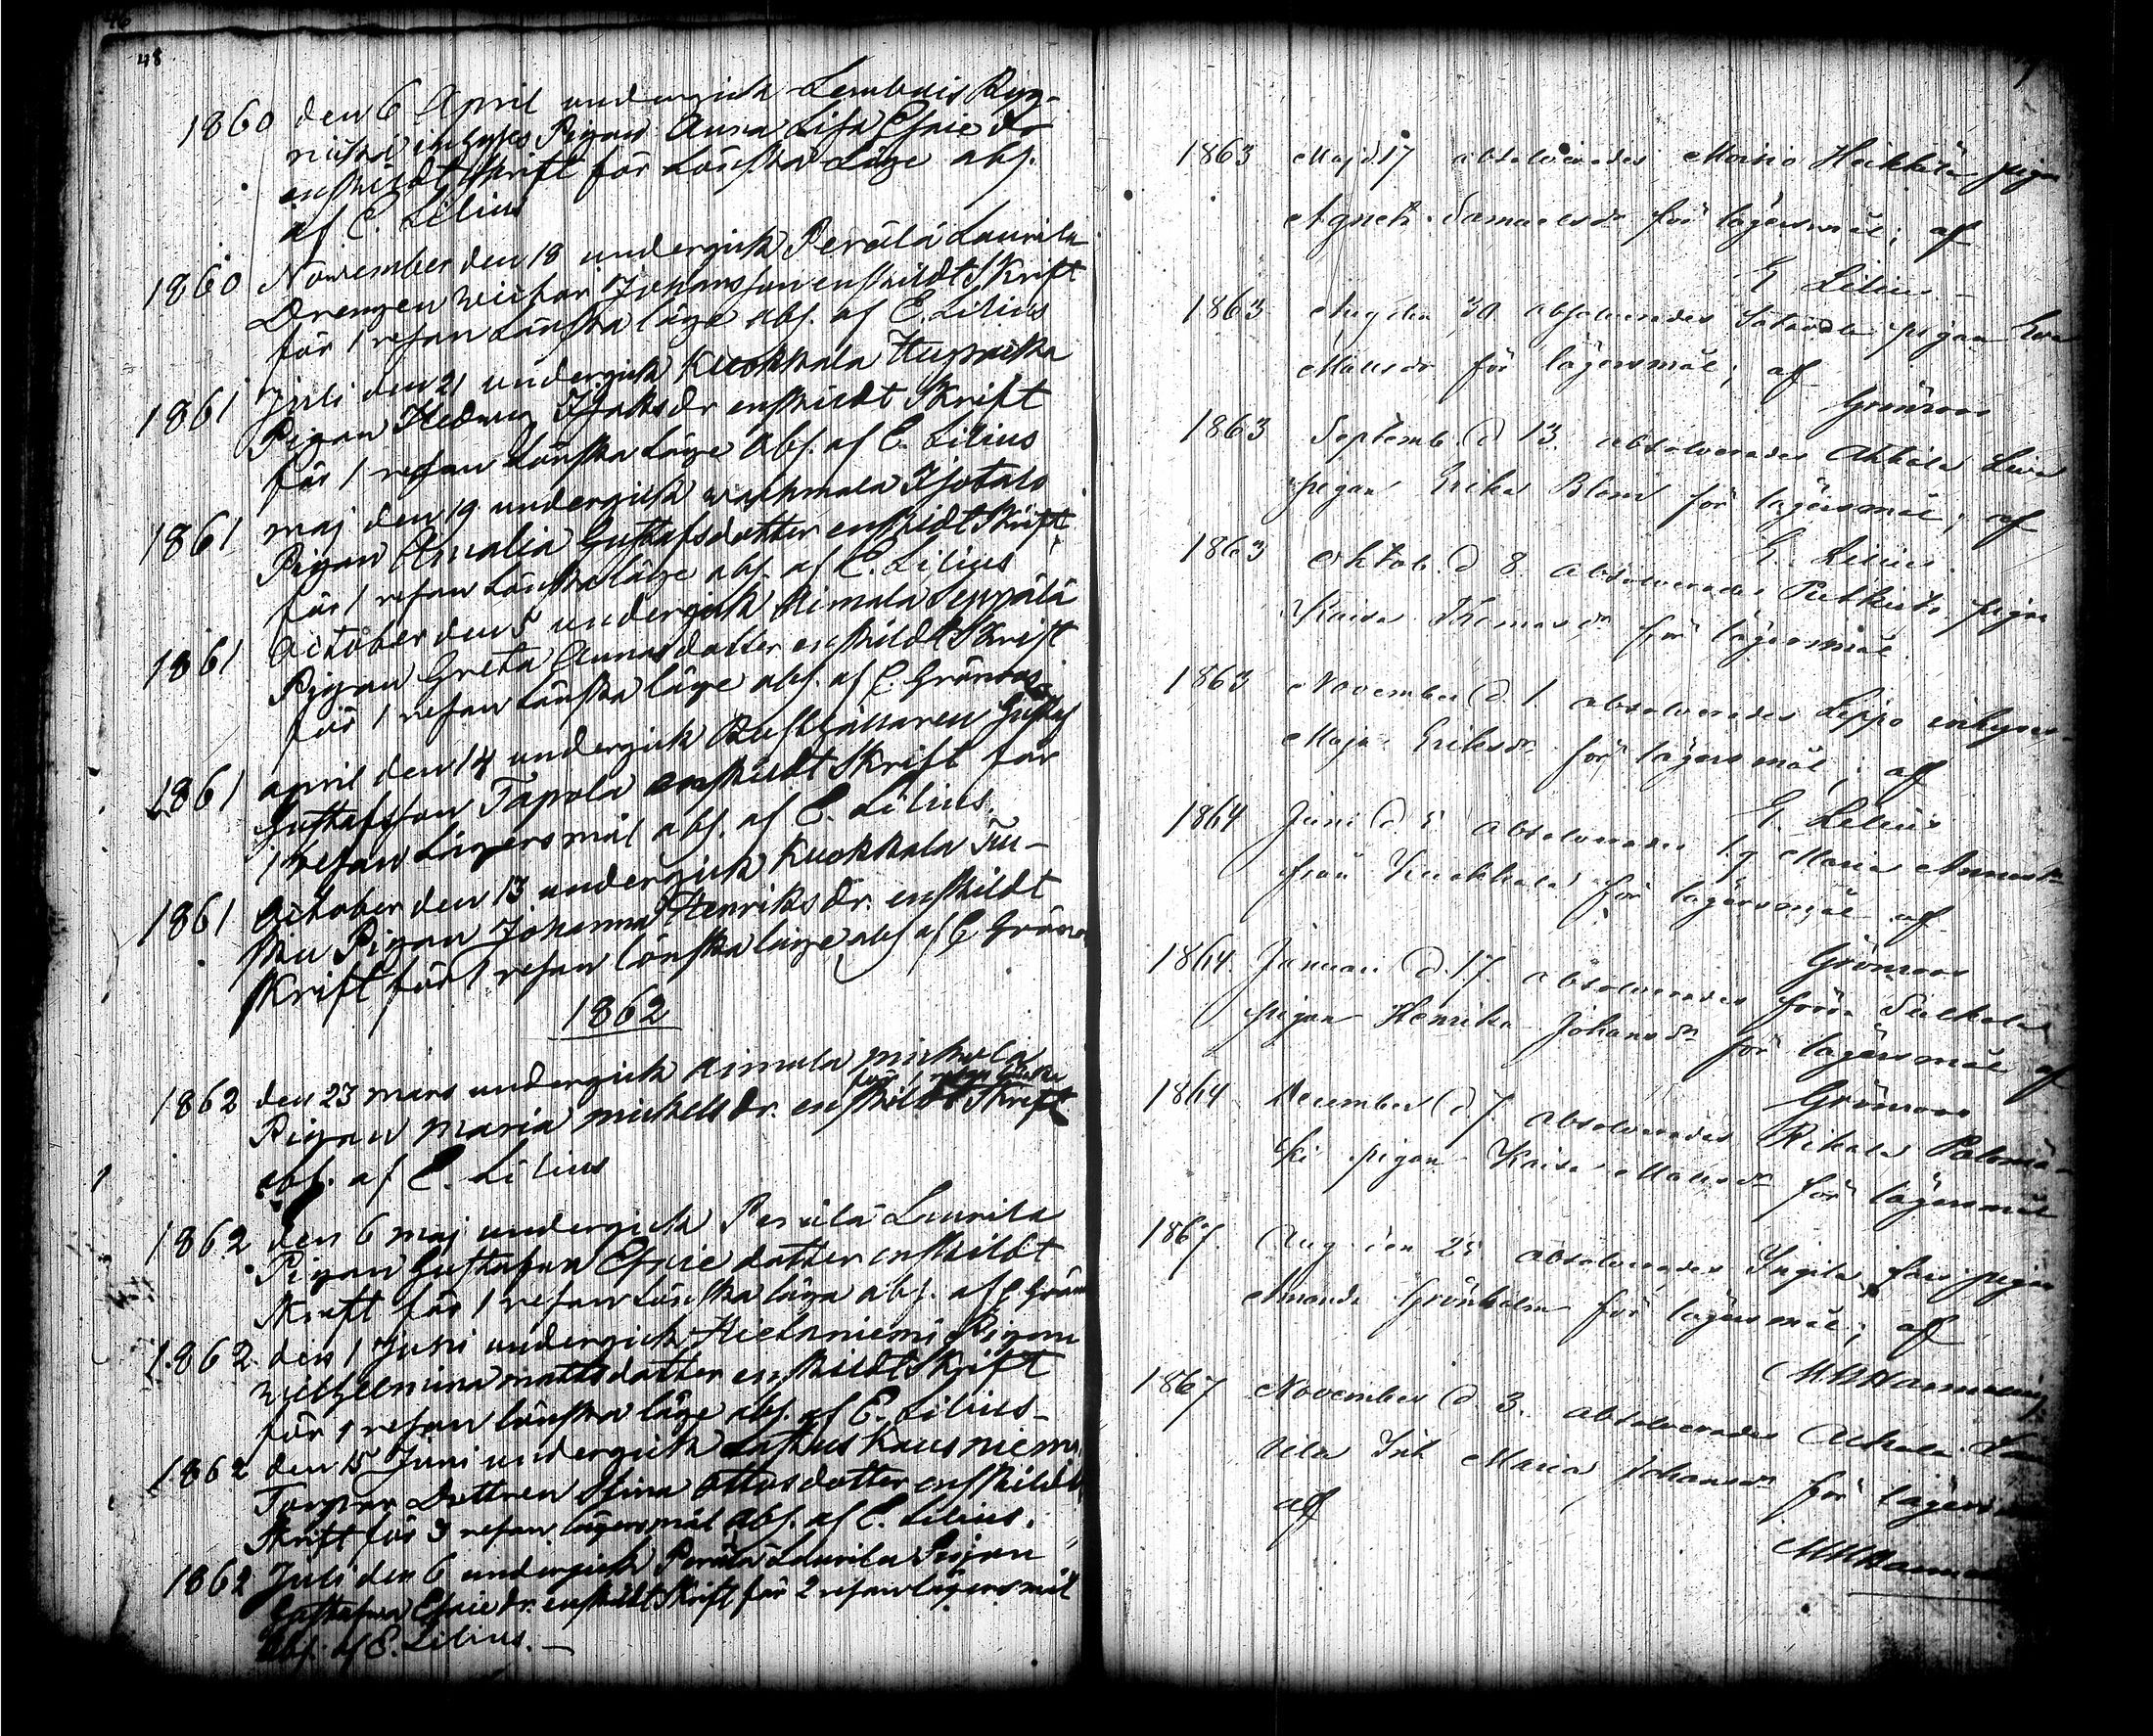 48
1860 den 6 April undergick Lembois Ryg-
Pigan Anna Lisa Esaiedr
enskildt skrift för Lönska Läge abs.
af E. Lilius
1860 November den 18 undergick Perälä Laurila
Drengen Victor Johansson enskildt Skrift
för 1 resan Lönska läge abs. af E. Lilius
1861 Juli den 21 undergick Kuokkala
Pigan Hedwig Isaksdr enskildt Skrift
för 1 resan Lönska Läge abs. af E. Lilius
1861 maj den 19 undergick Isotalo
Pigan Amalia Gustafsdotter enskildt Skrift
för 1 resan Lönska läge abs. af E. Lilius
1861 October den 5 undergick Aimala Seppälä
Pigan Greta Annasdotter enskildt Skrift
för 1 resan Lönska läge abs. af E Grönroos
1861 april den 14 undergick Gustaf
Gustafsson Tapola enskildt Skrift för
1 resan Lägersmål abs. af E. Lilius.
1861 October den 13 undergick Kuokkala Tur-
sku Pigan Johanna Henriksdr. enskildt
Skrift för 1 resan lönska läge abs af E Grönro
1862
1862 den 23 mars undergick Aimala
för 1 resan lönska
Pigan Maria mickelsdr. enskildt Skrift
abs. af E. Lilius
1862 den 6 maj undergick Perälä Laurila
Pigan Gustafva Esaiedotter enskildt
Skrift för 1 resan Lönska läge abs. af E Grön
1862 den 1 Juni undergick Hietaniemi Pigan
Wilhelmina mattsdotter enskildt Skrift
för 1 resan lönska läge abs. af E. Lilius-
1862 den 15 Juni undergick Kausniemi
Torpar Dottren Stina Ottosdotter enskildt
Skrift för 3 resan lägersmål abs. af E. Lilius.
1862 Juli den 6 undergick Perälä Laurila Pigan
Gustafva Esaiedr. enskildt Skrift för 2 resan lägersmål
abs. af E. Lilius.-
1863 Maj d 17 absolverades Moisio Heikkilä pigan
Agneta Samuelsdr för lägersmål; af
E Lilius
1863 Aug den 30 absolverades pigan Eva
Mattsdr för lägersmål; af
Grönroos
1863 Septemb. d 13. absolverades Ahtiala
pigan Erika Blom för lägersmål; af
E. Lilius.
1863 Oktob. d 8 absolverades pigan
Kaisa Thomasdr för lägersmål
1863 November d. 1. absolverades Seppä inhyses-
Maja Eriksdr för lägersmål; af
E. Lilius
1864 Juni d. 5 absolverades Maria Annasdr
från Kuokkala för lägersmål af
Grönroos
1864. Januari d. 17. absolverades förra
pigan Henrika Johansdr för lägersmål af
Grönroos
1864 December d 7. absolverades Rikala Palomä-
ki pigan Kaisa Mattsdr för lägersmål
1867. Aug den 25 absolverades Yrjälä pigan
Amanda Grönholm för lägersmål; af
1867 November d. 3. absolverades
Inh Maria Johansdr för lägersmål
af